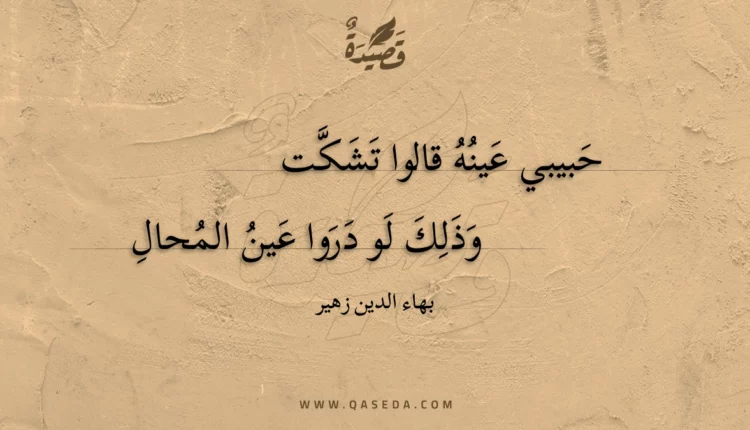 قَصِيْدَةٌ
حَبيبي عَينُهُ قالوا تَشَكَّت
وَذَلِكَ لَو دَرَوا عَينُ المُحالِ
بهاء الدين زهير
WWW.QASEDA.COM